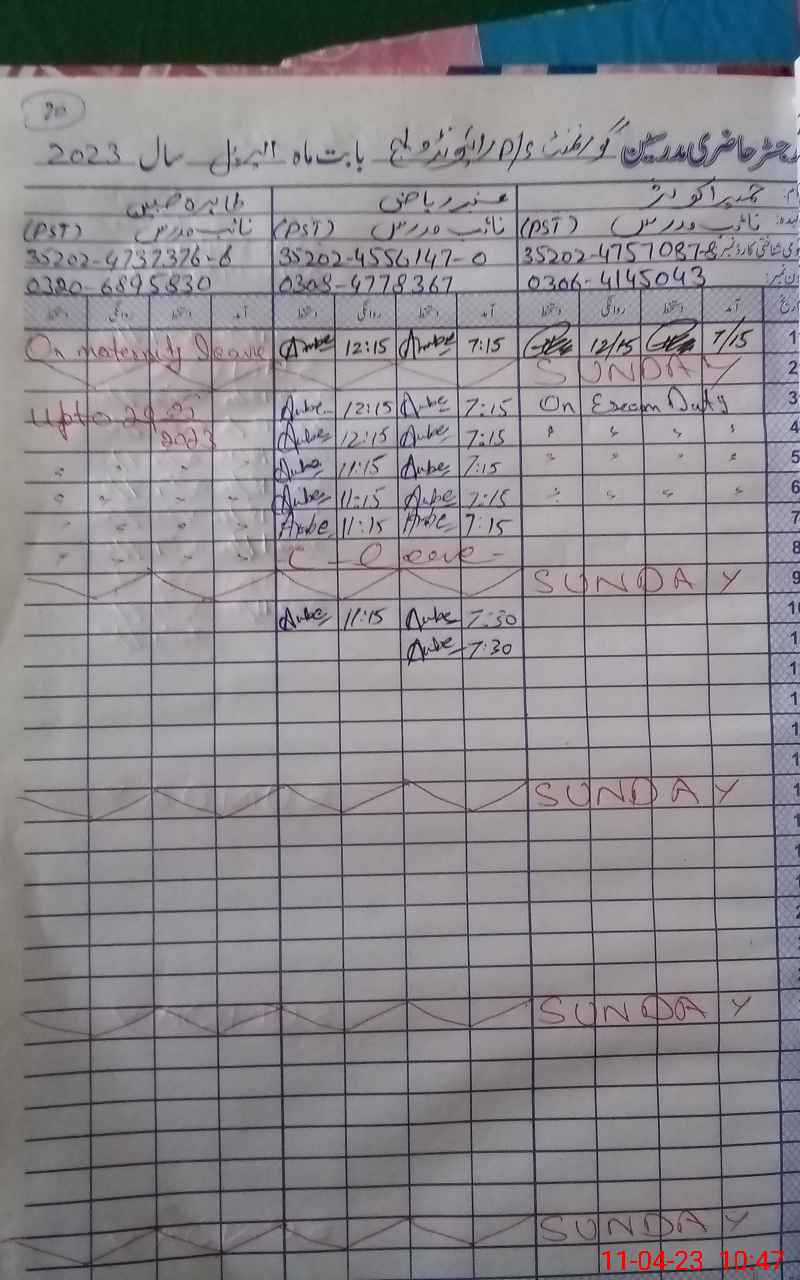 20
رجسٹر حاضری مدرسین گورنمنٹ P/S رائیونڈ ویلج بابت ماہ اپریل سال 2023
حمیرا کوثر عنبر ریاض طاہرہ
نائب مدرس (PST) نائب مدرس (PST) نائب مدرس (PST)
35202-4757087-8 35202-4556147-0 35202-4737376-6
0306-4145043 0308-4778367 0320-6895830
آمد دستخط روانگی دستخط آمد دستخط روانگی دستخط آمد دستخط روانگی دستخط
1 7/15 12/15 7:15 12:15 On maternity leave
2 SUNDAY
3 On Exam Duty 7:15 12:15 upto 29
4 " " " " 7:15 12:15 2023
5 " " " " 7:15 11:15 " " "
6 " " " " 7:15 11:15 " " " "
7 7:15 11:15 " " " "
8 C-Leave " " " "
9 SUNDAY
10 7:30 11:15
7:30
SUNDAY
SUNDAY
SUNDAY
11-04-23 10:47